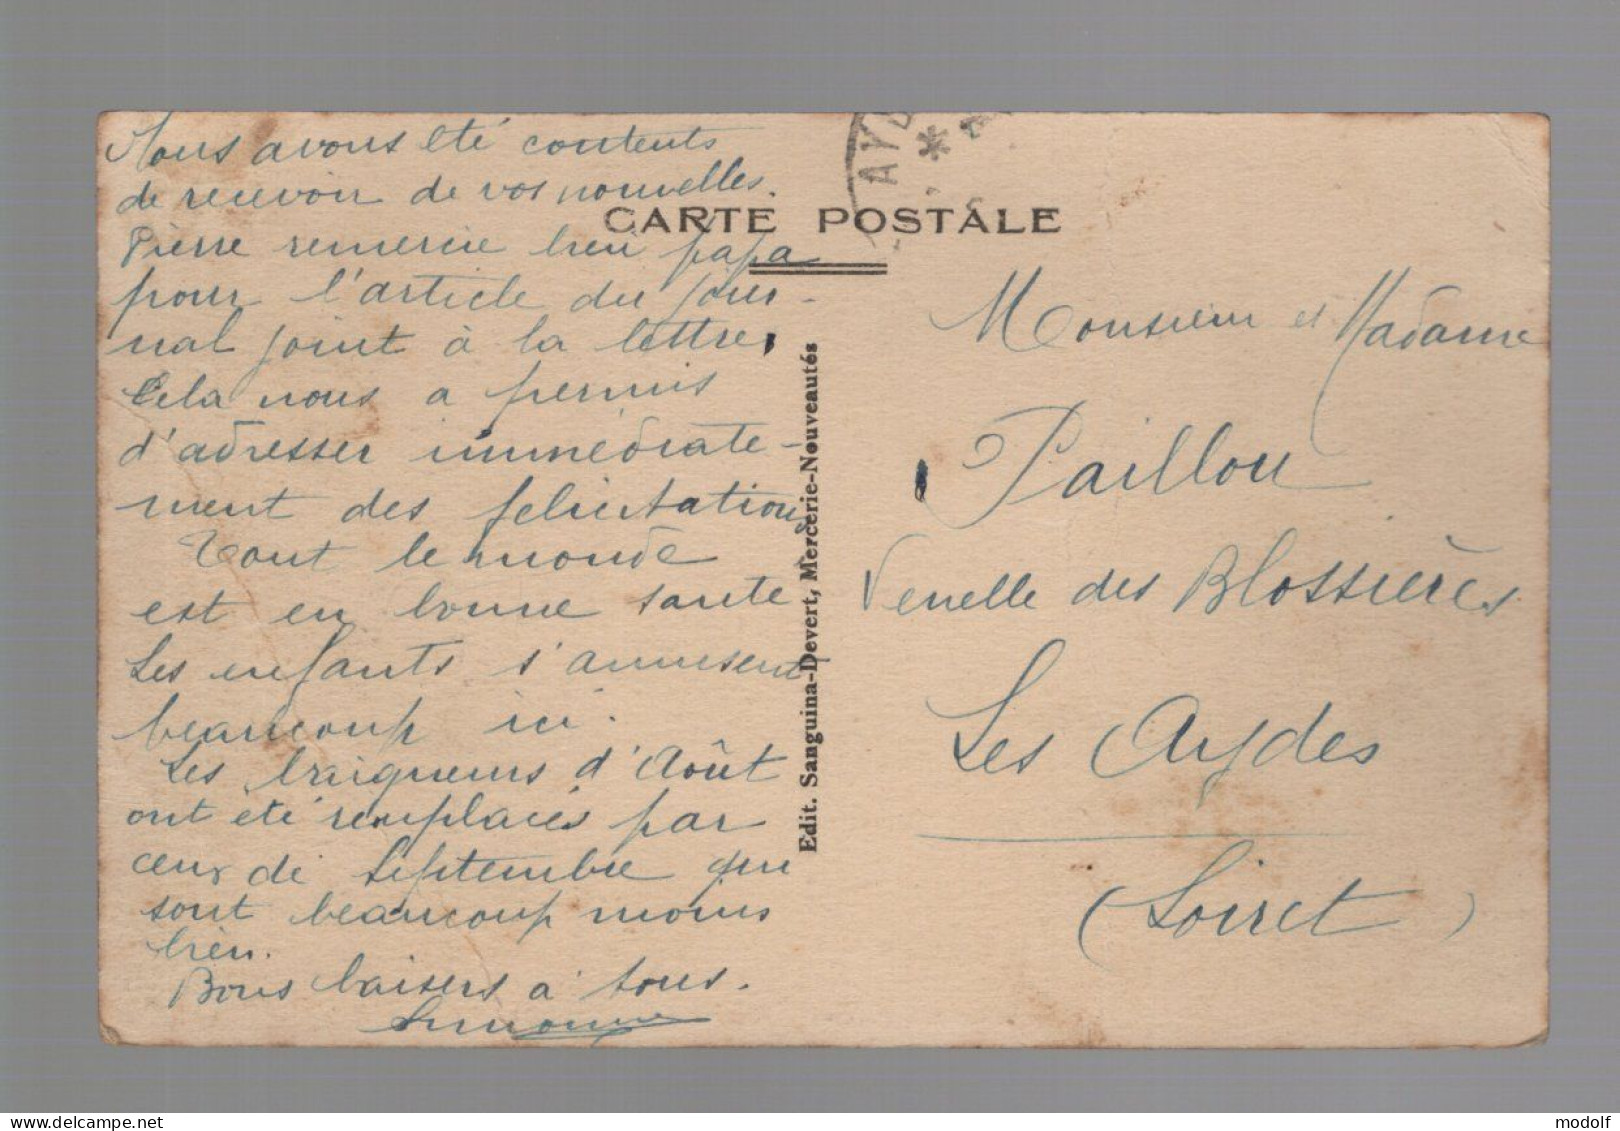 Nous avons été contents
de recevoir de vos nouvelles.
Pierre remercie bien papa
pour l'article du jour-
nal joint à la lettre,
Cela nous a permis
d'adresser immédiate-
ment des felicitations
Tout le monde
est en bonne santé
Les enfants s'amusent
beaucoup ici.
Les baigneurs d'Août
ont été remplacés par
ceux de Septembre qui
sont beaucoup moins
bien.
Bons baisers à tous.
Simonne
CARTE POSTALE
Edit. Sanguina-Devert, Mercerie-Nouveautés
Monsieur et Madame
Paillou
Venelle des Blossières
Les Aydes
(Loiret)
modolf